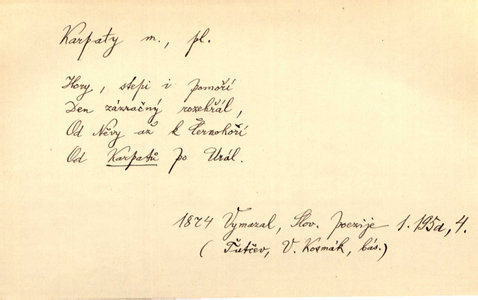 Karpaty m., pl.
Hory, stepi i pomoří
Den zázračný rozehřál,
Od Něvy až k Černohoří
Od Karpatů po Urál.
1874 Vymazal, Slov. poezije 1. 195d, 4.
(Ťutčev, V. Kosmák, bás.)